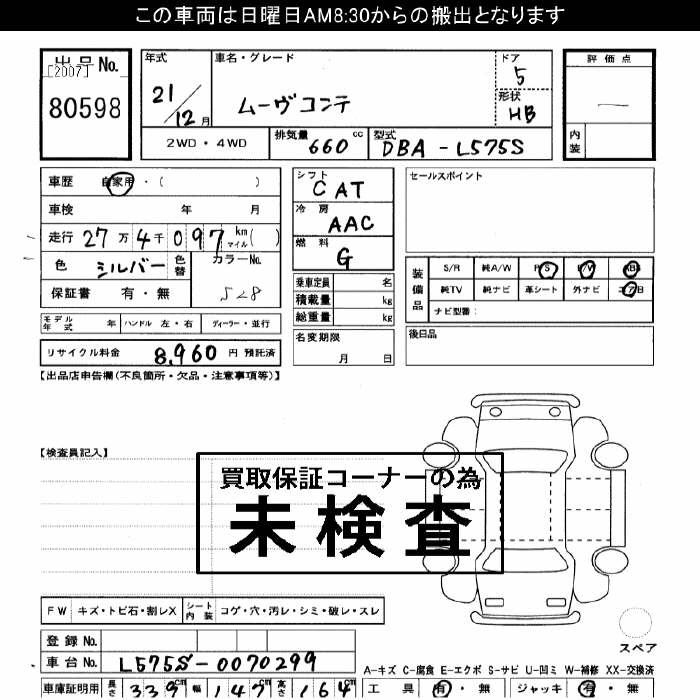 この車両は日曜日AM8:30からの搬出となります
出品No.
[2007]
80598
年式
21/12月
車名・グレード
ムーヴコンテ
ドア
5
形状
HB
評価点
内装
2WD・4WD
排気量
660 cc
型式
DBA-L575S
車歴 自家用・( )
車検 年 月
走行 27万4千097km マイル( )
色 シルバー 色替 カラーNo.
S28
保証書 有・無
シフト
CAT
冷房
AAC
燃料
G
乗車定員 名
積載量 kg
総重量 kg
名変期限
月 日
セールスポイント
装備品
S/R 純A/W P/S P/W ABS
純TV 純ナビ 革シート 外ナビ エアB
ナビ型番:
後日品
モデル年式 年 ハンドル 左・右 ディーラー・並行
リサイクル料金 8,960 円 預託済
【出品店申告欄(不良箇所・欠品・注意事項等)】
【検査員記入】
買取保証コーナーの為
未検査
FW キズ・トビ石・割レX シート内装 コゲ・穴・汚レ・シミ・破レ・スレ
スペア
登録No.
車台No. L575S-0070299
A-キズ C-腐食 E-エクボ S-サビ U-凹ミ W-補修 XX-交換済
車庫証明用 長さ 339cm 幅 147cm 高さ 164cm
工具 有・無 ジャッキ 有・無